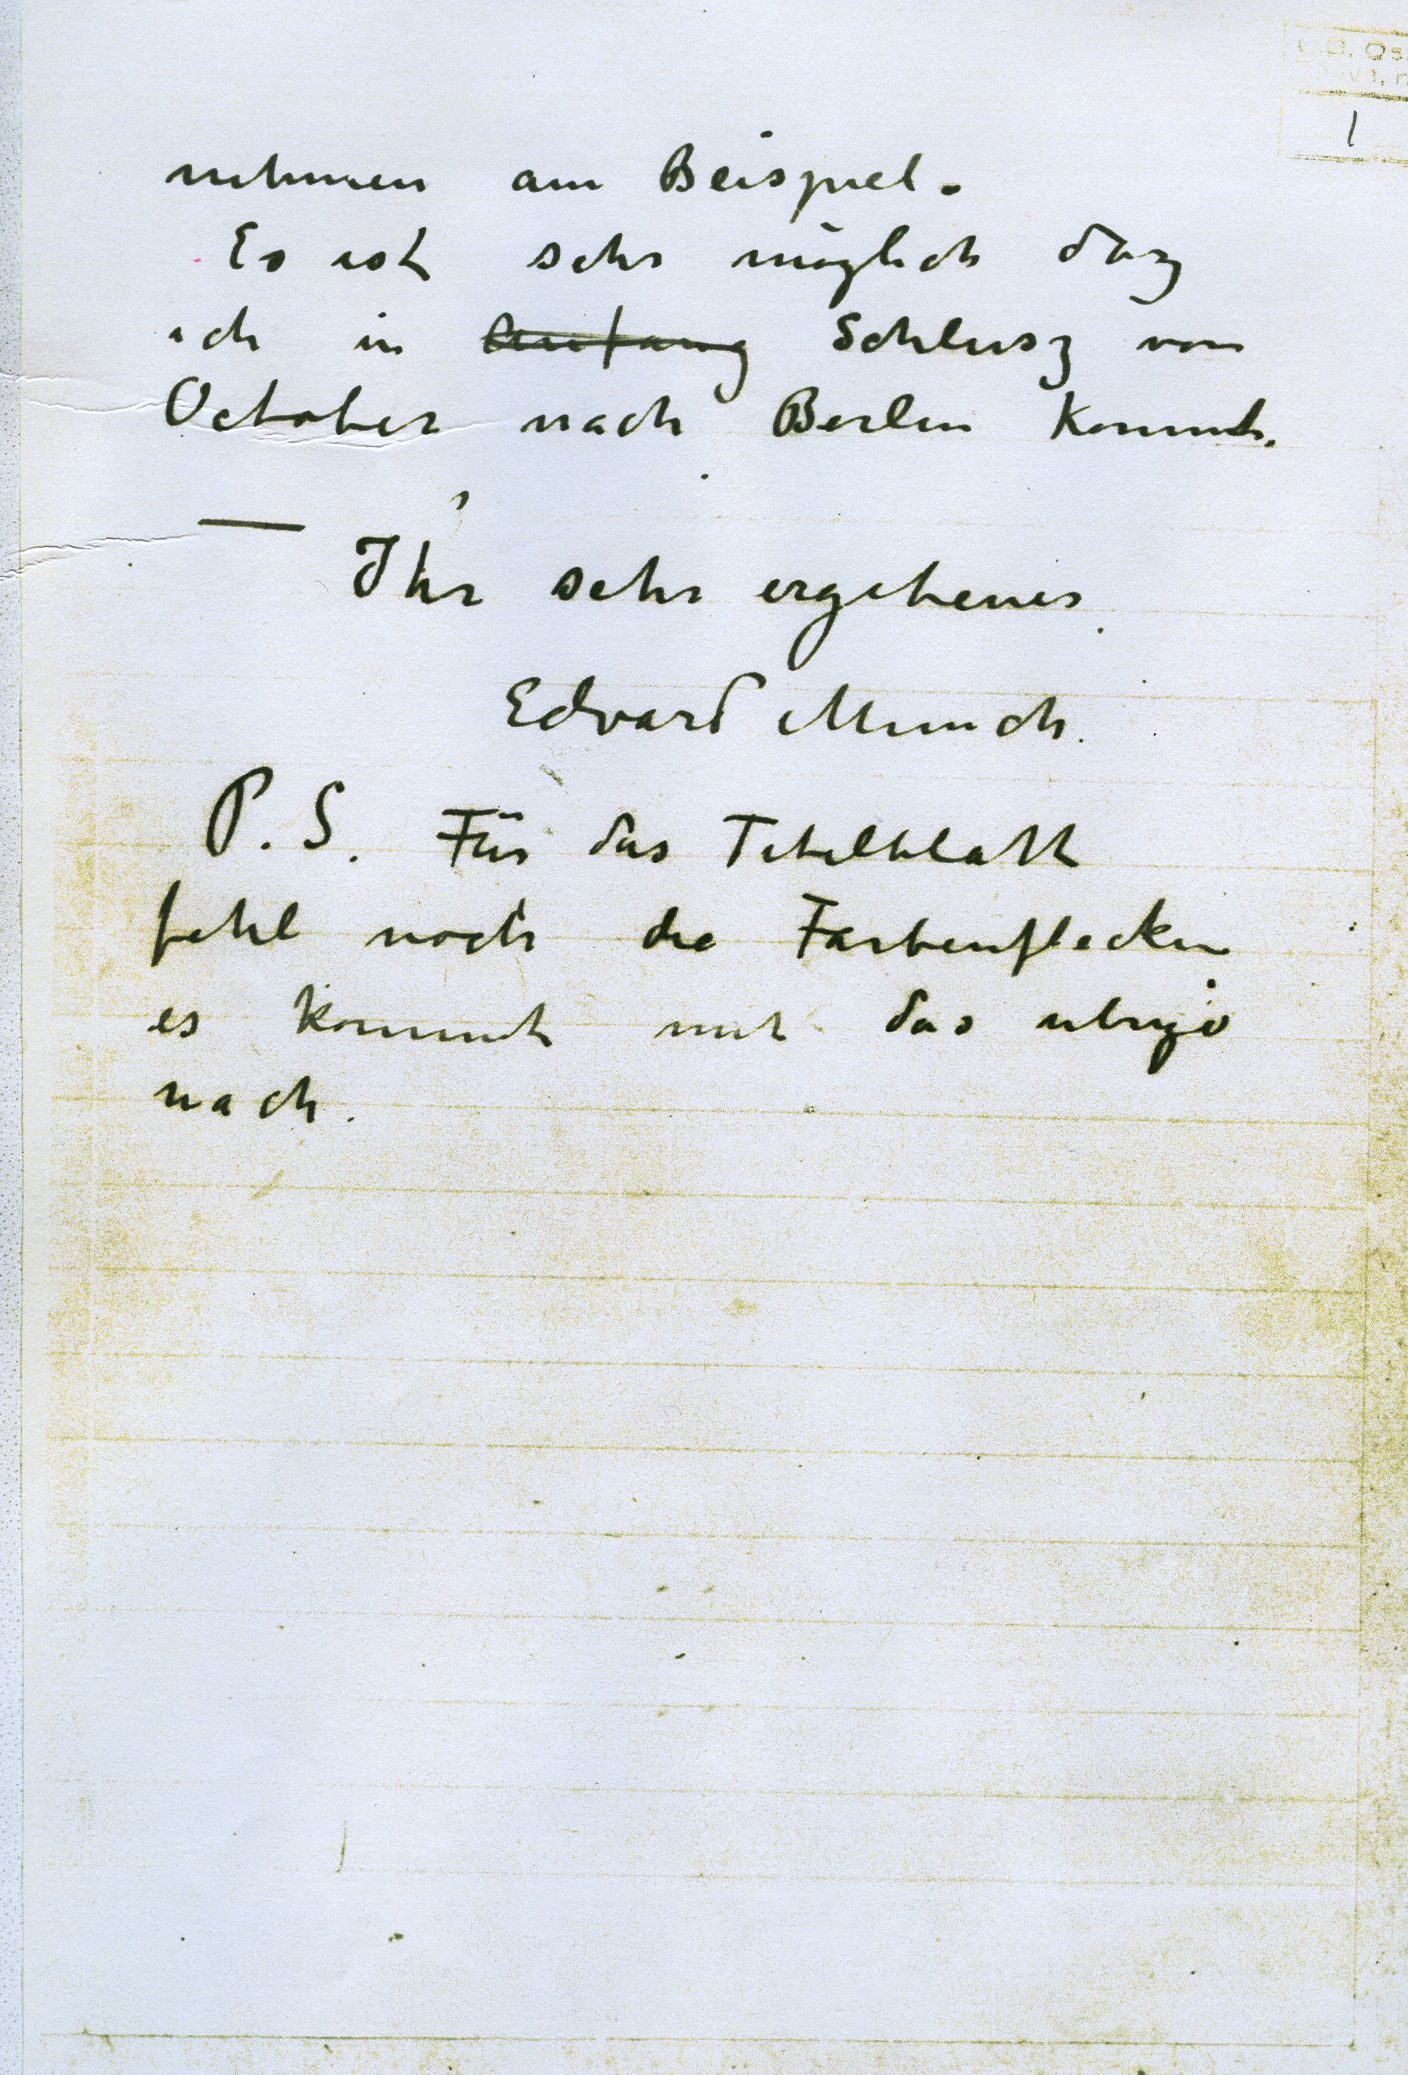 nehmen am Beispiel.
Es ist sehr möglich dasz
ich in Anfang Schlusz von
October nach Berlin komme.
Ihr sehr ergebener
Edvard Munch.
P.S. Für das Titelblatt
fehl noch die Farbenflecken
es kommt mit das ubrige
nach.